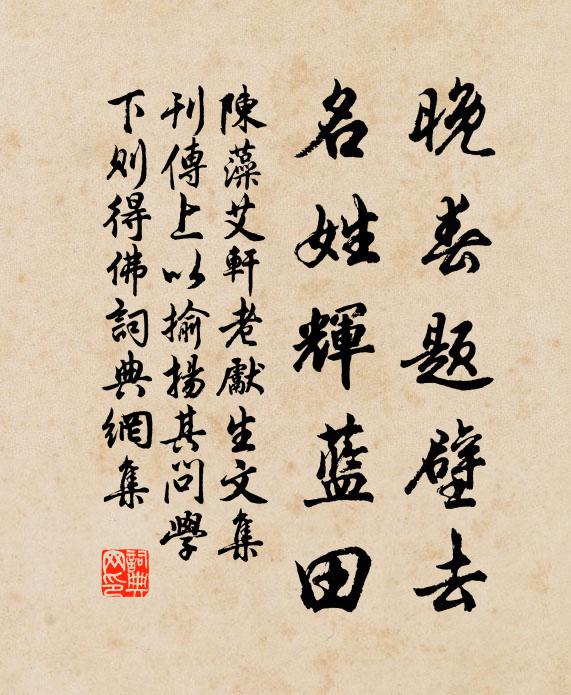 晚春題壁去
名姓輝藍田
陳藻艾軒老獻生文集
刊傳上以揄揚其問學
下則得佛詞典網集
詞典
网印